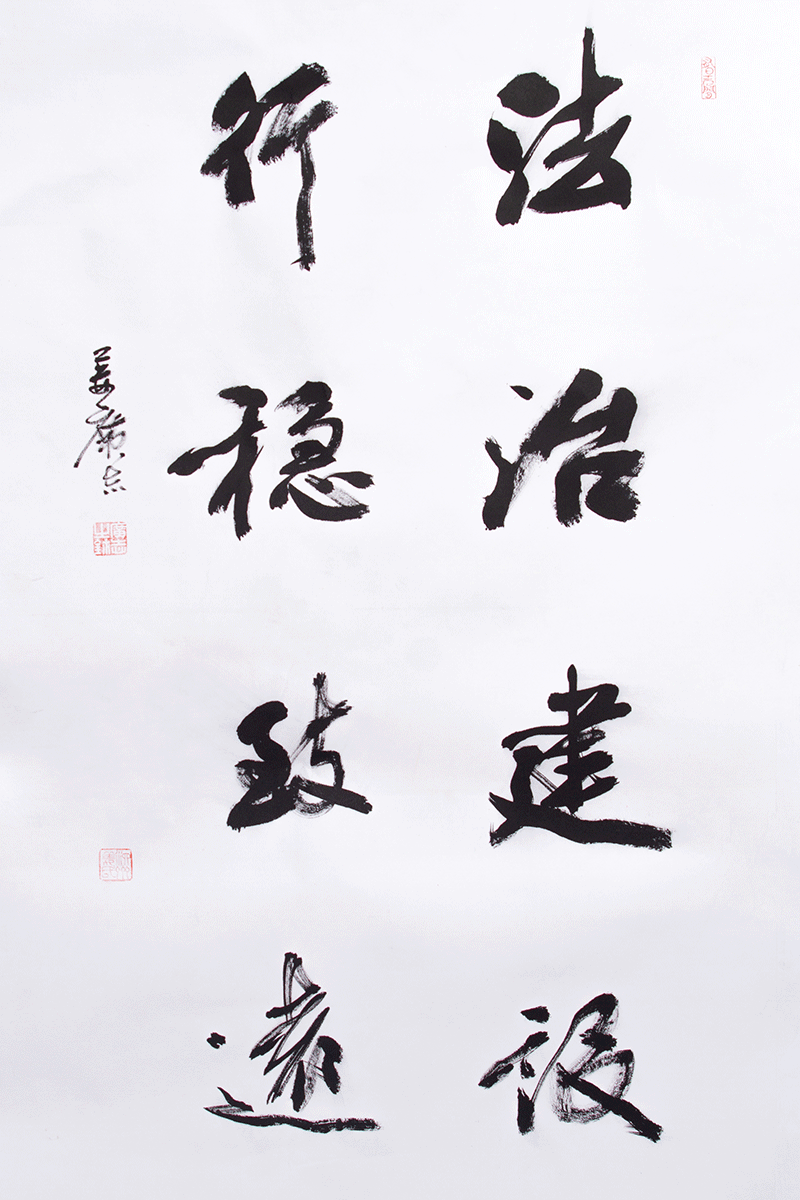 法治建设
行稳致远
姜广志